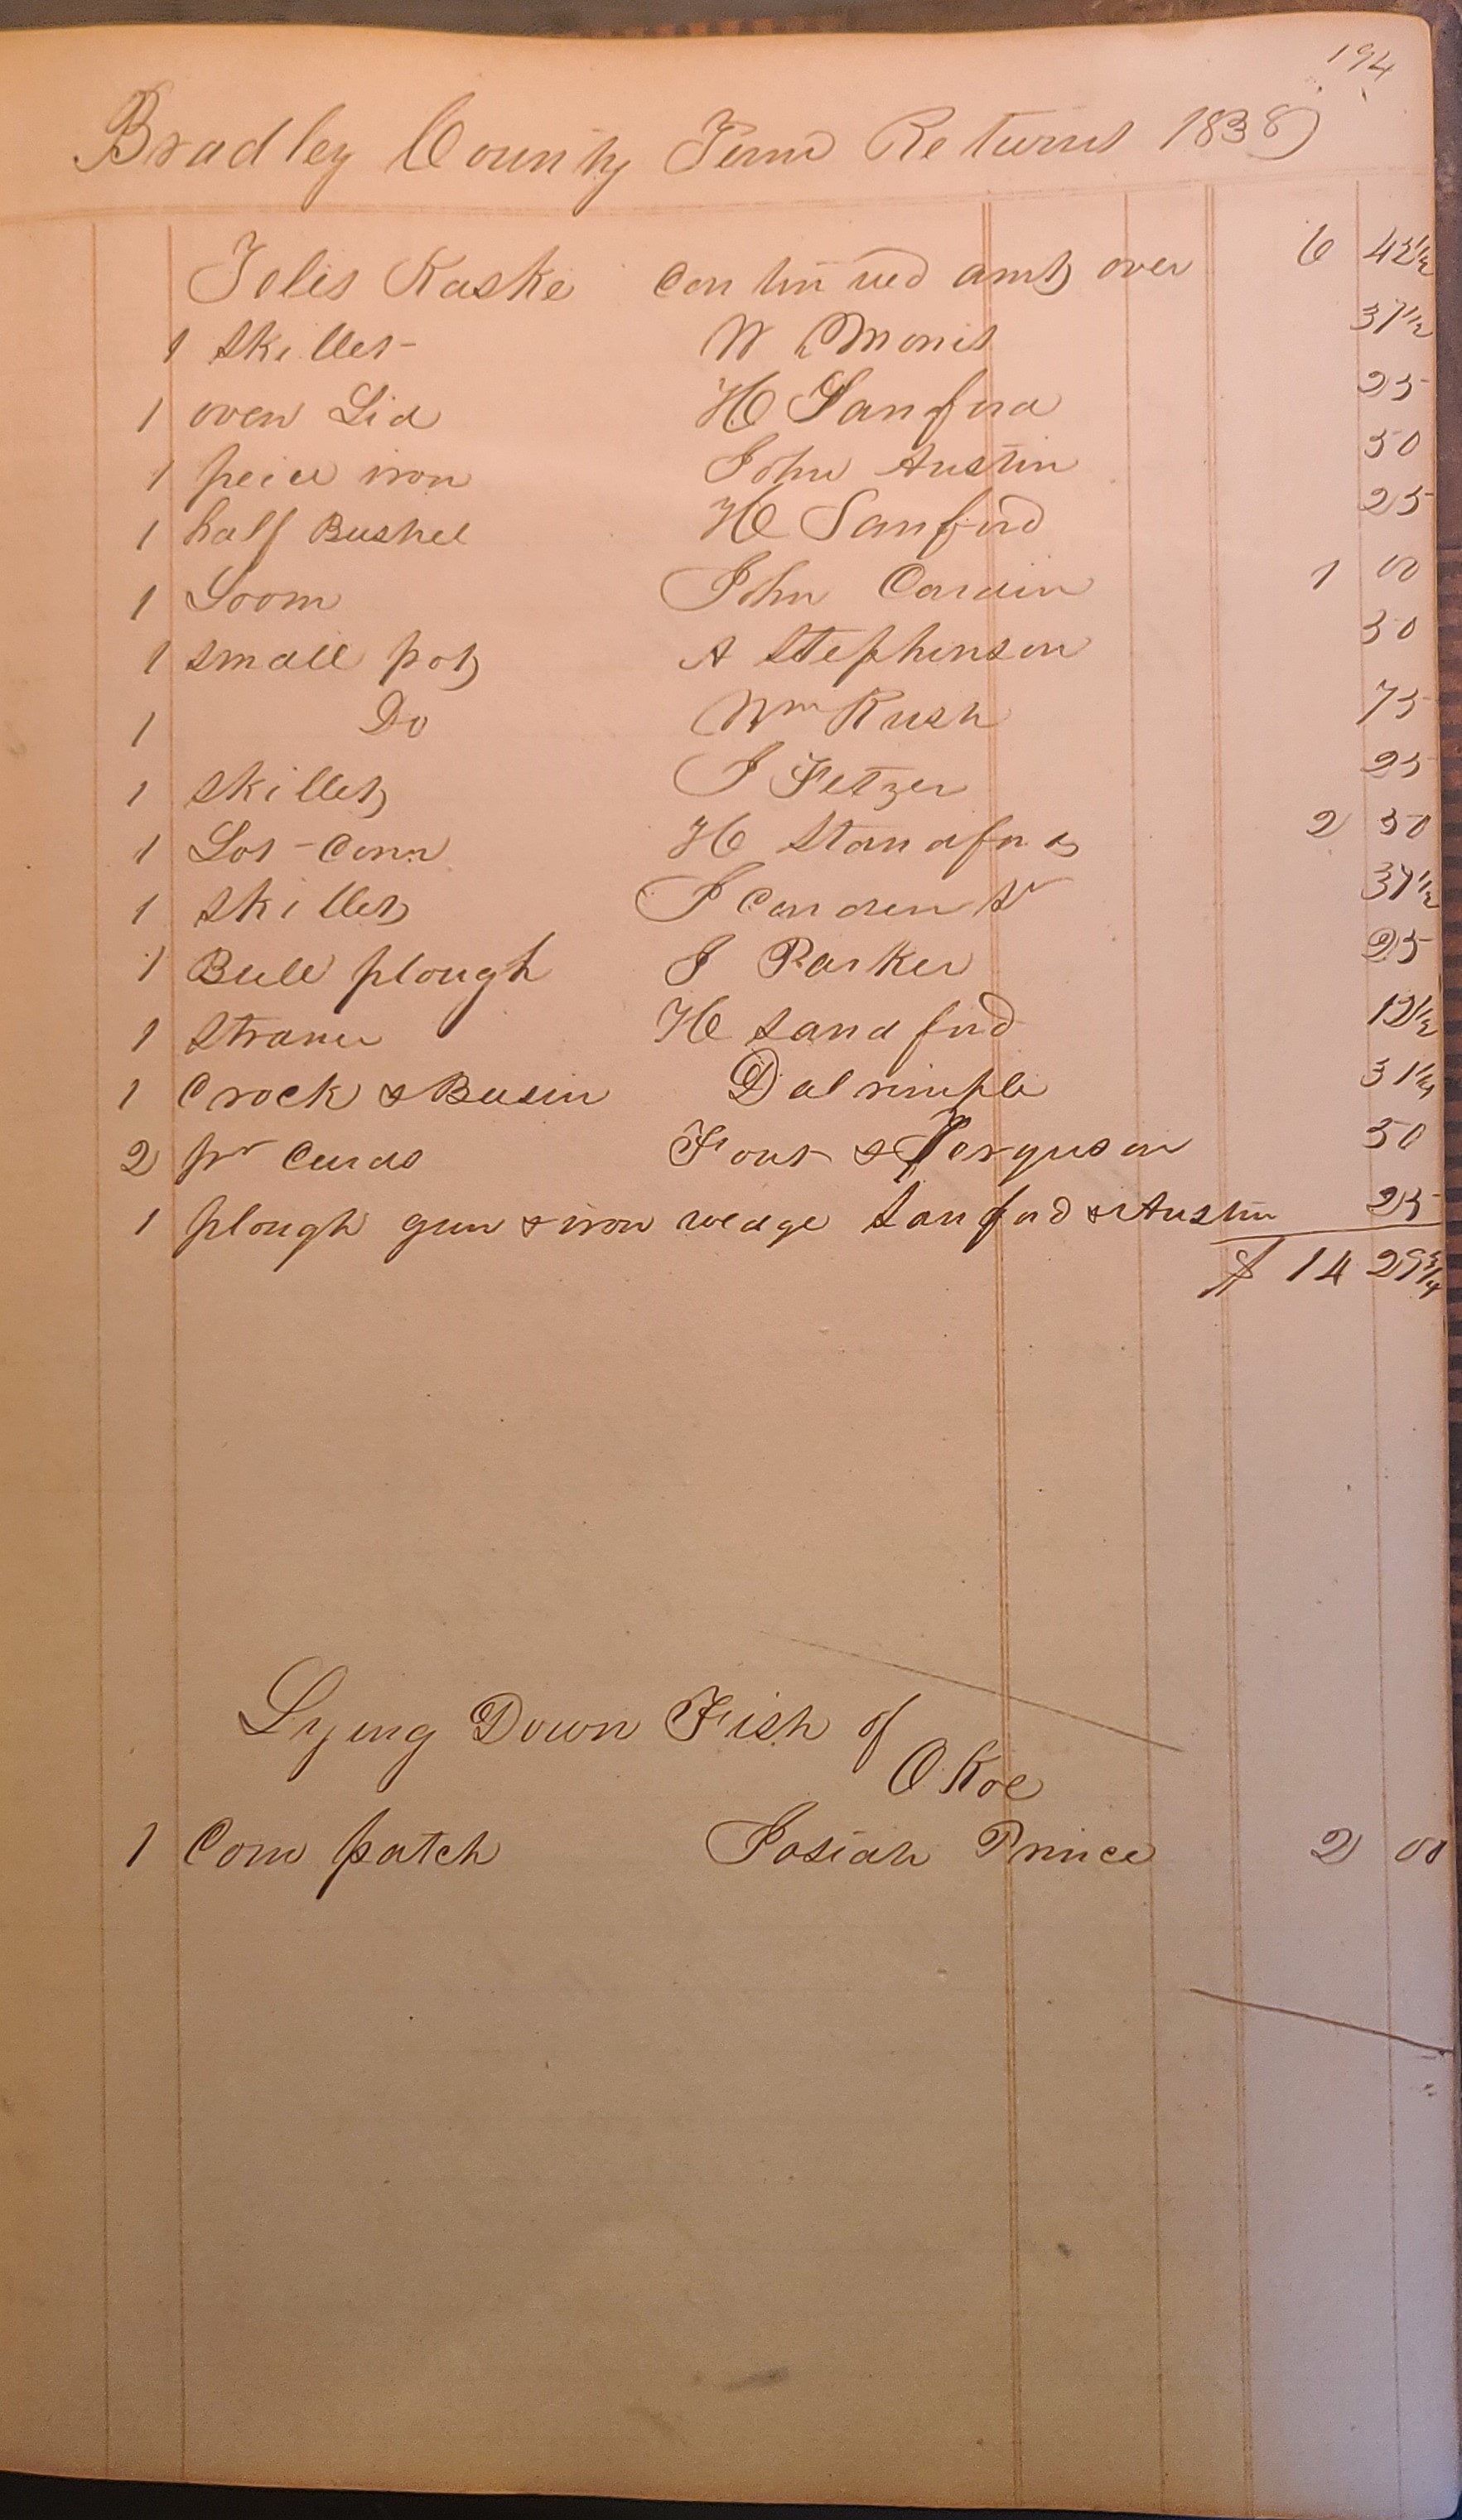 194
Bradley County Tenn Returns 1838
Tolis Kaske continued amt over 6 42½
1 Skillet W Morris 37½
1 oven Lid H Sanford 25
1 peice iron John Austin 50
1 half Bushel H Sanford 25
1 Loom John Carden 1 00
1 small pot A Stephenson 50
1 Do Wm Rush 75
1 skillet J Fetzer 25
1 Lot Corn H Standfor 2 50
1 skillet J Carden Sr 37½
1 Bull plough J Parker 25
1 Straner H Sandford 12½
1 Crock & Basin Dalrimple 31¼
2 pr Cards Fout & Ferguson 50
1 plough gun & iron wedge Sanford & Austin 25
$ 14 29¾
Lying Down Fish of
O Koe
1 Corn patch Josiah Prince 2 00